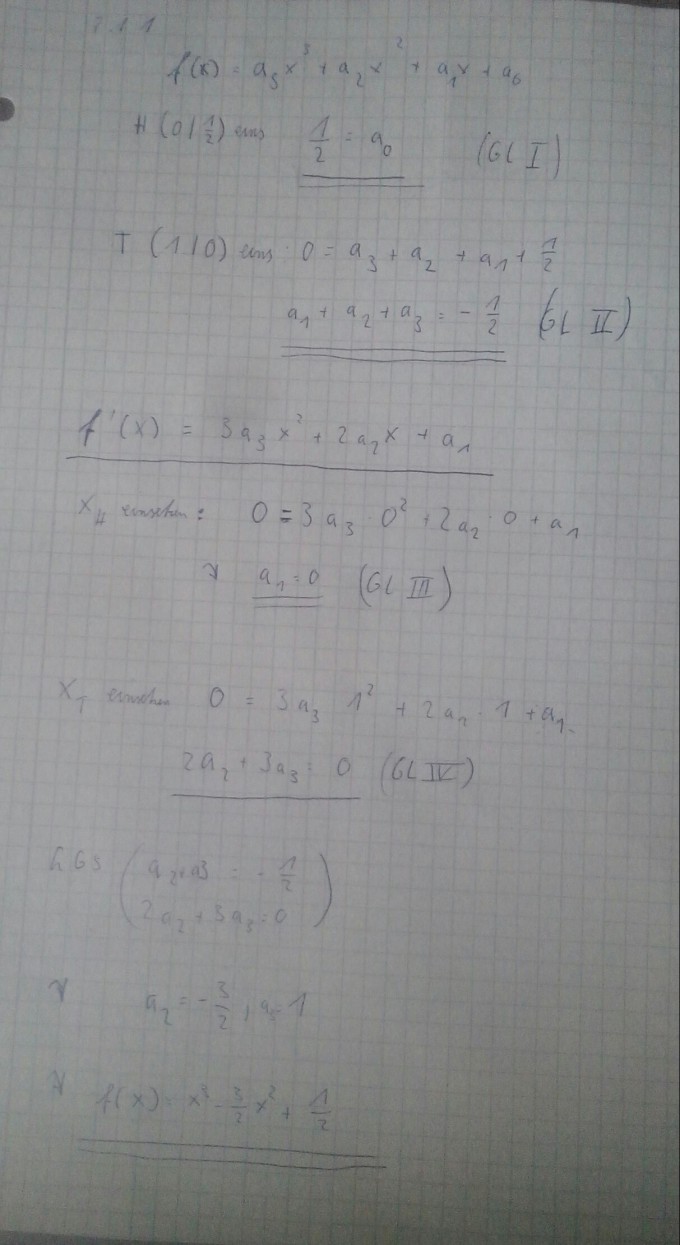 f(x) = a₃x³ + a₂x² + a₁x + a₀
H (0/½) eins ½ = a₀ (GL I)
T (1/0) eins: 0 = a₃ + a₂ + a₁ + ½
a₁ + a₂ + a₃ = - ½ (GL II)
f'(x) = 3a₃x² + 2a₂x + a₁
x_H einsehen: 0 = 3a₃·0² + 2a₂·0 + a₁
a₁ = 0 (GL III)
x_T einsehen 0 = 3a₃ 1² + 2a₂·1 + a₁
2a₂ + 3a₃ = 0 (GL IV)
LGS ( a₂+a3 = - ½
2a₂ + 3a₃ = 0 )
a₂ = - 3/2, a₃ = 1
f(x) = x³ - 3/2 x² + ½